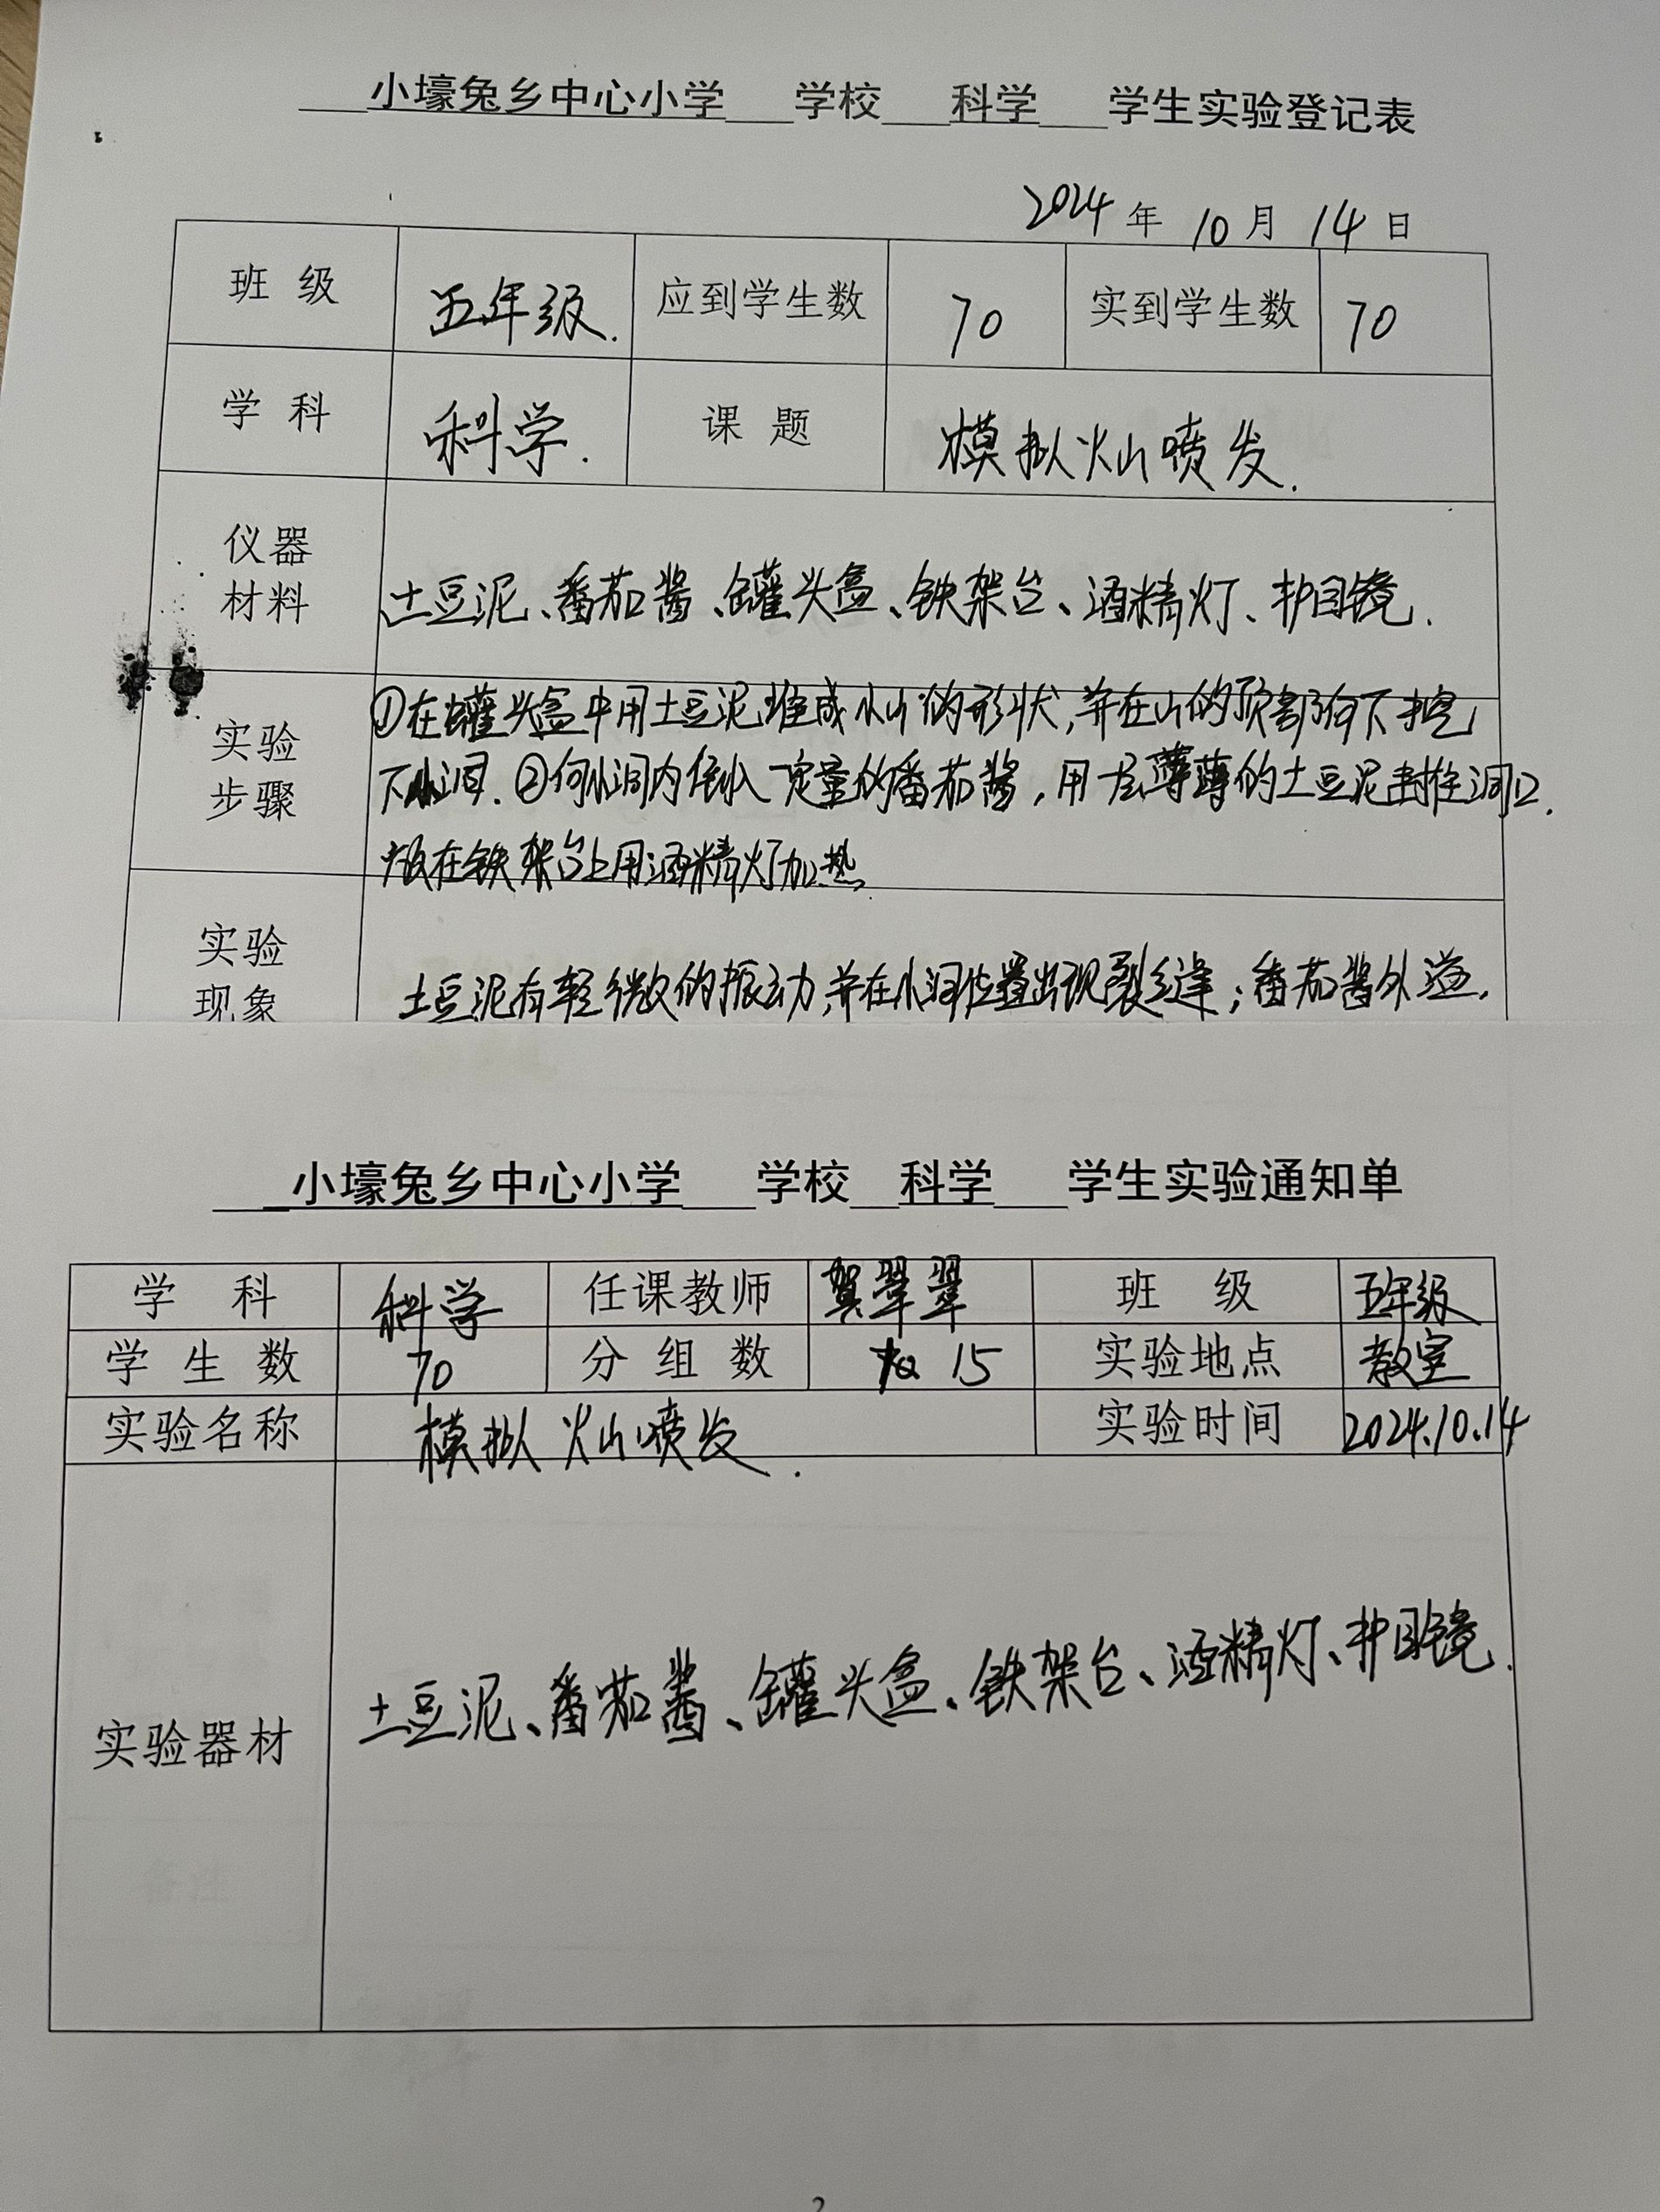 小壕兔乡中心小学 学校 科学 学生实验登记表
2024 年 10 月 14 日
班 级 五年级. 应到学生数 70 实到学生数 70
学 科 科学. 课 题 模拟火山喷发.
仪器
材料
土豆泥、番茄酱、罐头盒、铁架台、酒精灯、护目镜.
实验
步骤
①在罐头盒中用土豆泥堆成小山的形状,并在山的顶部向下挖
下小洞.②向小洞内倒入一定量的番茄酱,用一层薄薄的土豆泥封住洞口.
放在铁架台上用酒精灯加热.
实验
现象
土豆泥有轻微的振动,并在小洞位置出现裂缝;番茄酱外溢.
小壕兔乡中心小学 学校 科学 学生实验通知单
学 科 科学 任课教师 贺翠翠 班 级 五年级
学 生 数 70 分 组 数 15 实验地点 教室
实验名称 模拟火山喷发. 实验时间 2024.10.14
实验器材 土豆泥、番茄酱、罐头盒、铁架台、酒精灯、护目镜.
2